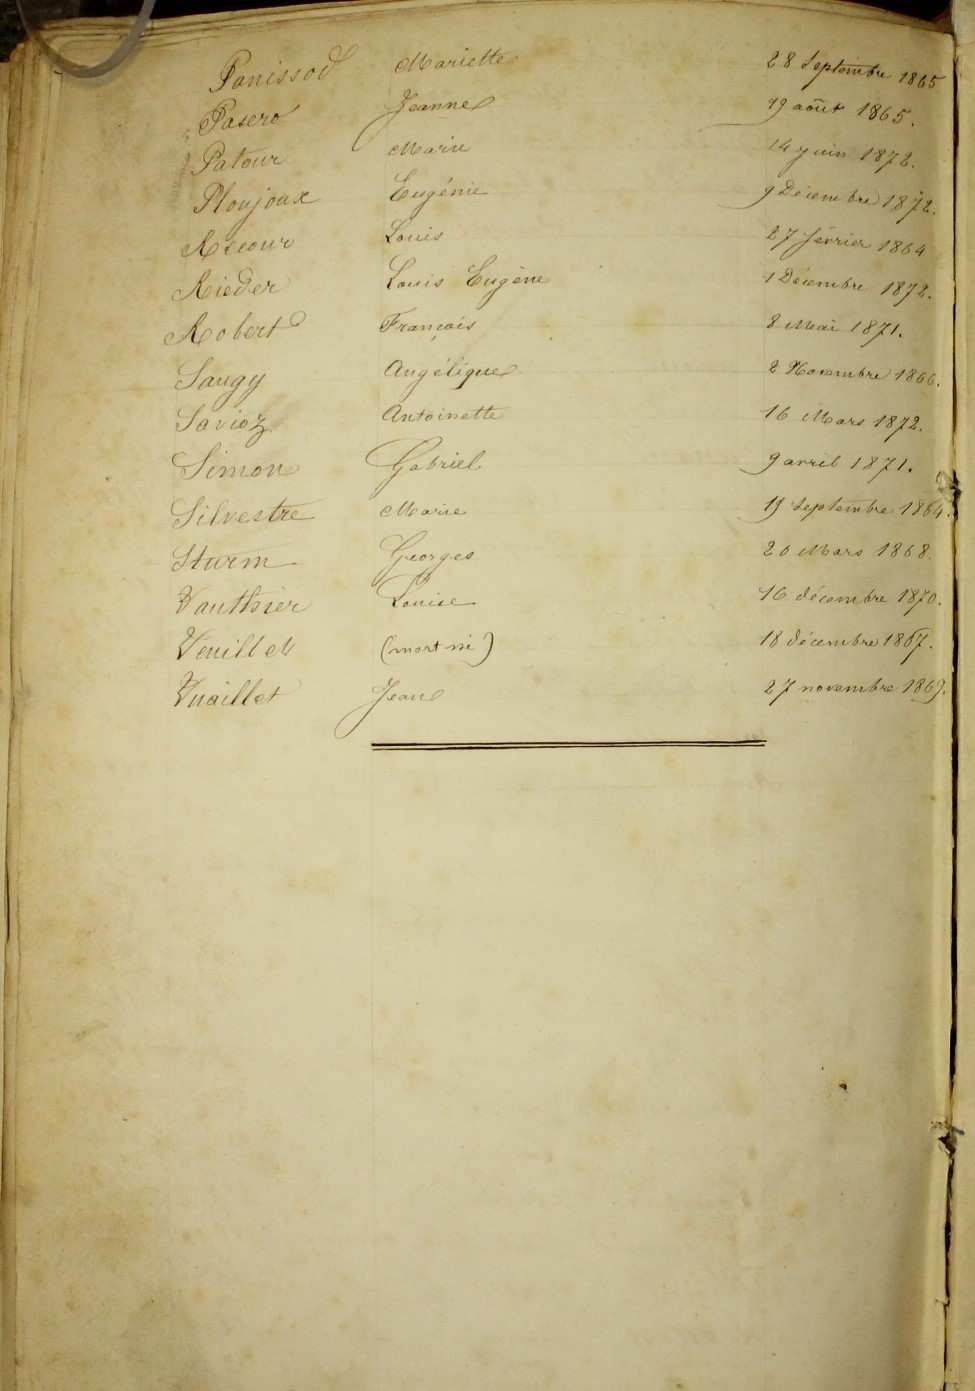 Panissod Mariette 28 Septembre 1865
Pasero Jeanne 19 août 1865.
Patour Marie 14 juin 1872.
Ploujoux Eugénie 9 Décembre 1872.
Récour Louis 27 février 1864
Rieder Louis Eugène 1 Décembre 1872.
Robert François 8 Mai 1871.
Saugy Angélique 2 Novembre 1866.
Savioz Antoinette 16 Mars 1872.
Simon Gabriel 9 avril 1871.
Silvestre Marie 19 Septembre 1864.
Sturm Georges 20 Mars 1868.
Vauthier Louise 16 décembre 1870.
Veuillet (mort né) 18 décembre 1867.
Vuaillet Jean 27 novembre 1869.